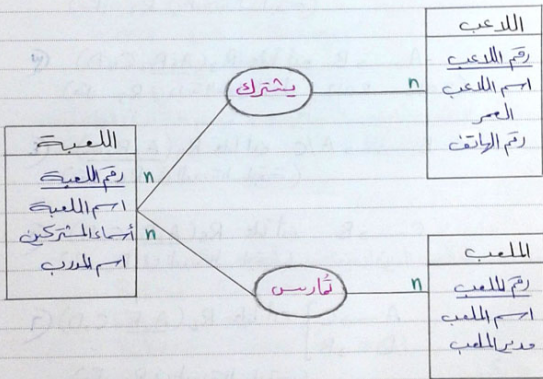 اللاعب
رقم اللاعب
اسم اللاعب
العمر
رقم الهاتف
n
يشترك
اللعبة
رقم اللعبة
اسم اللعبة
أسماء المشتركين
اسم المدرب
n
n
تمارس
n
الملعب
رقم الملعب
اسم الملعب
مدير الملعب